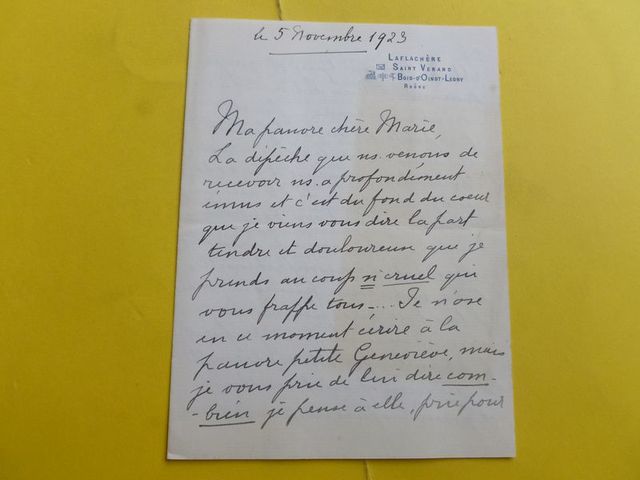 le 5 Novembre 1923
LAFLACHÈRE
SAINT VERAND
BOIS-D'OINGT-LEGNY
RHÔNE
Ma pauvre chère Marie,
La dépêche que ns. venons de
recevoir ns. a profondément
émus et c'est du fond du coeur
que je viens vous dire la part
tendre et douloureuse que je
prends au coup si cruel qui
vous frappe tous_... Je n'ose
en ce moment écrire à la
pauvre petite Geneviève, mais
je vous prie de lui dire com-
-bien je pense à elle, prie pour